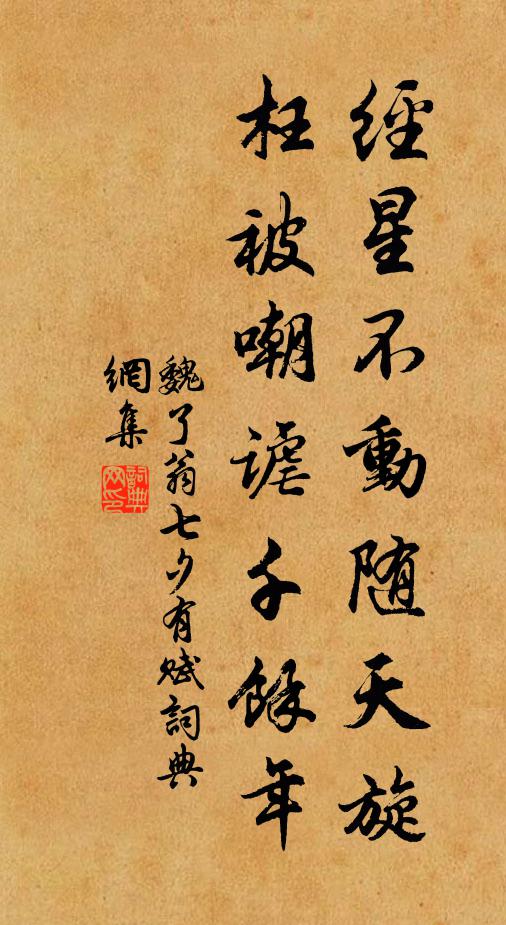 經星不動随天旋
枉被嘲謔千餘年
魏了翁七夕有賦詞典
網集
詞典網印